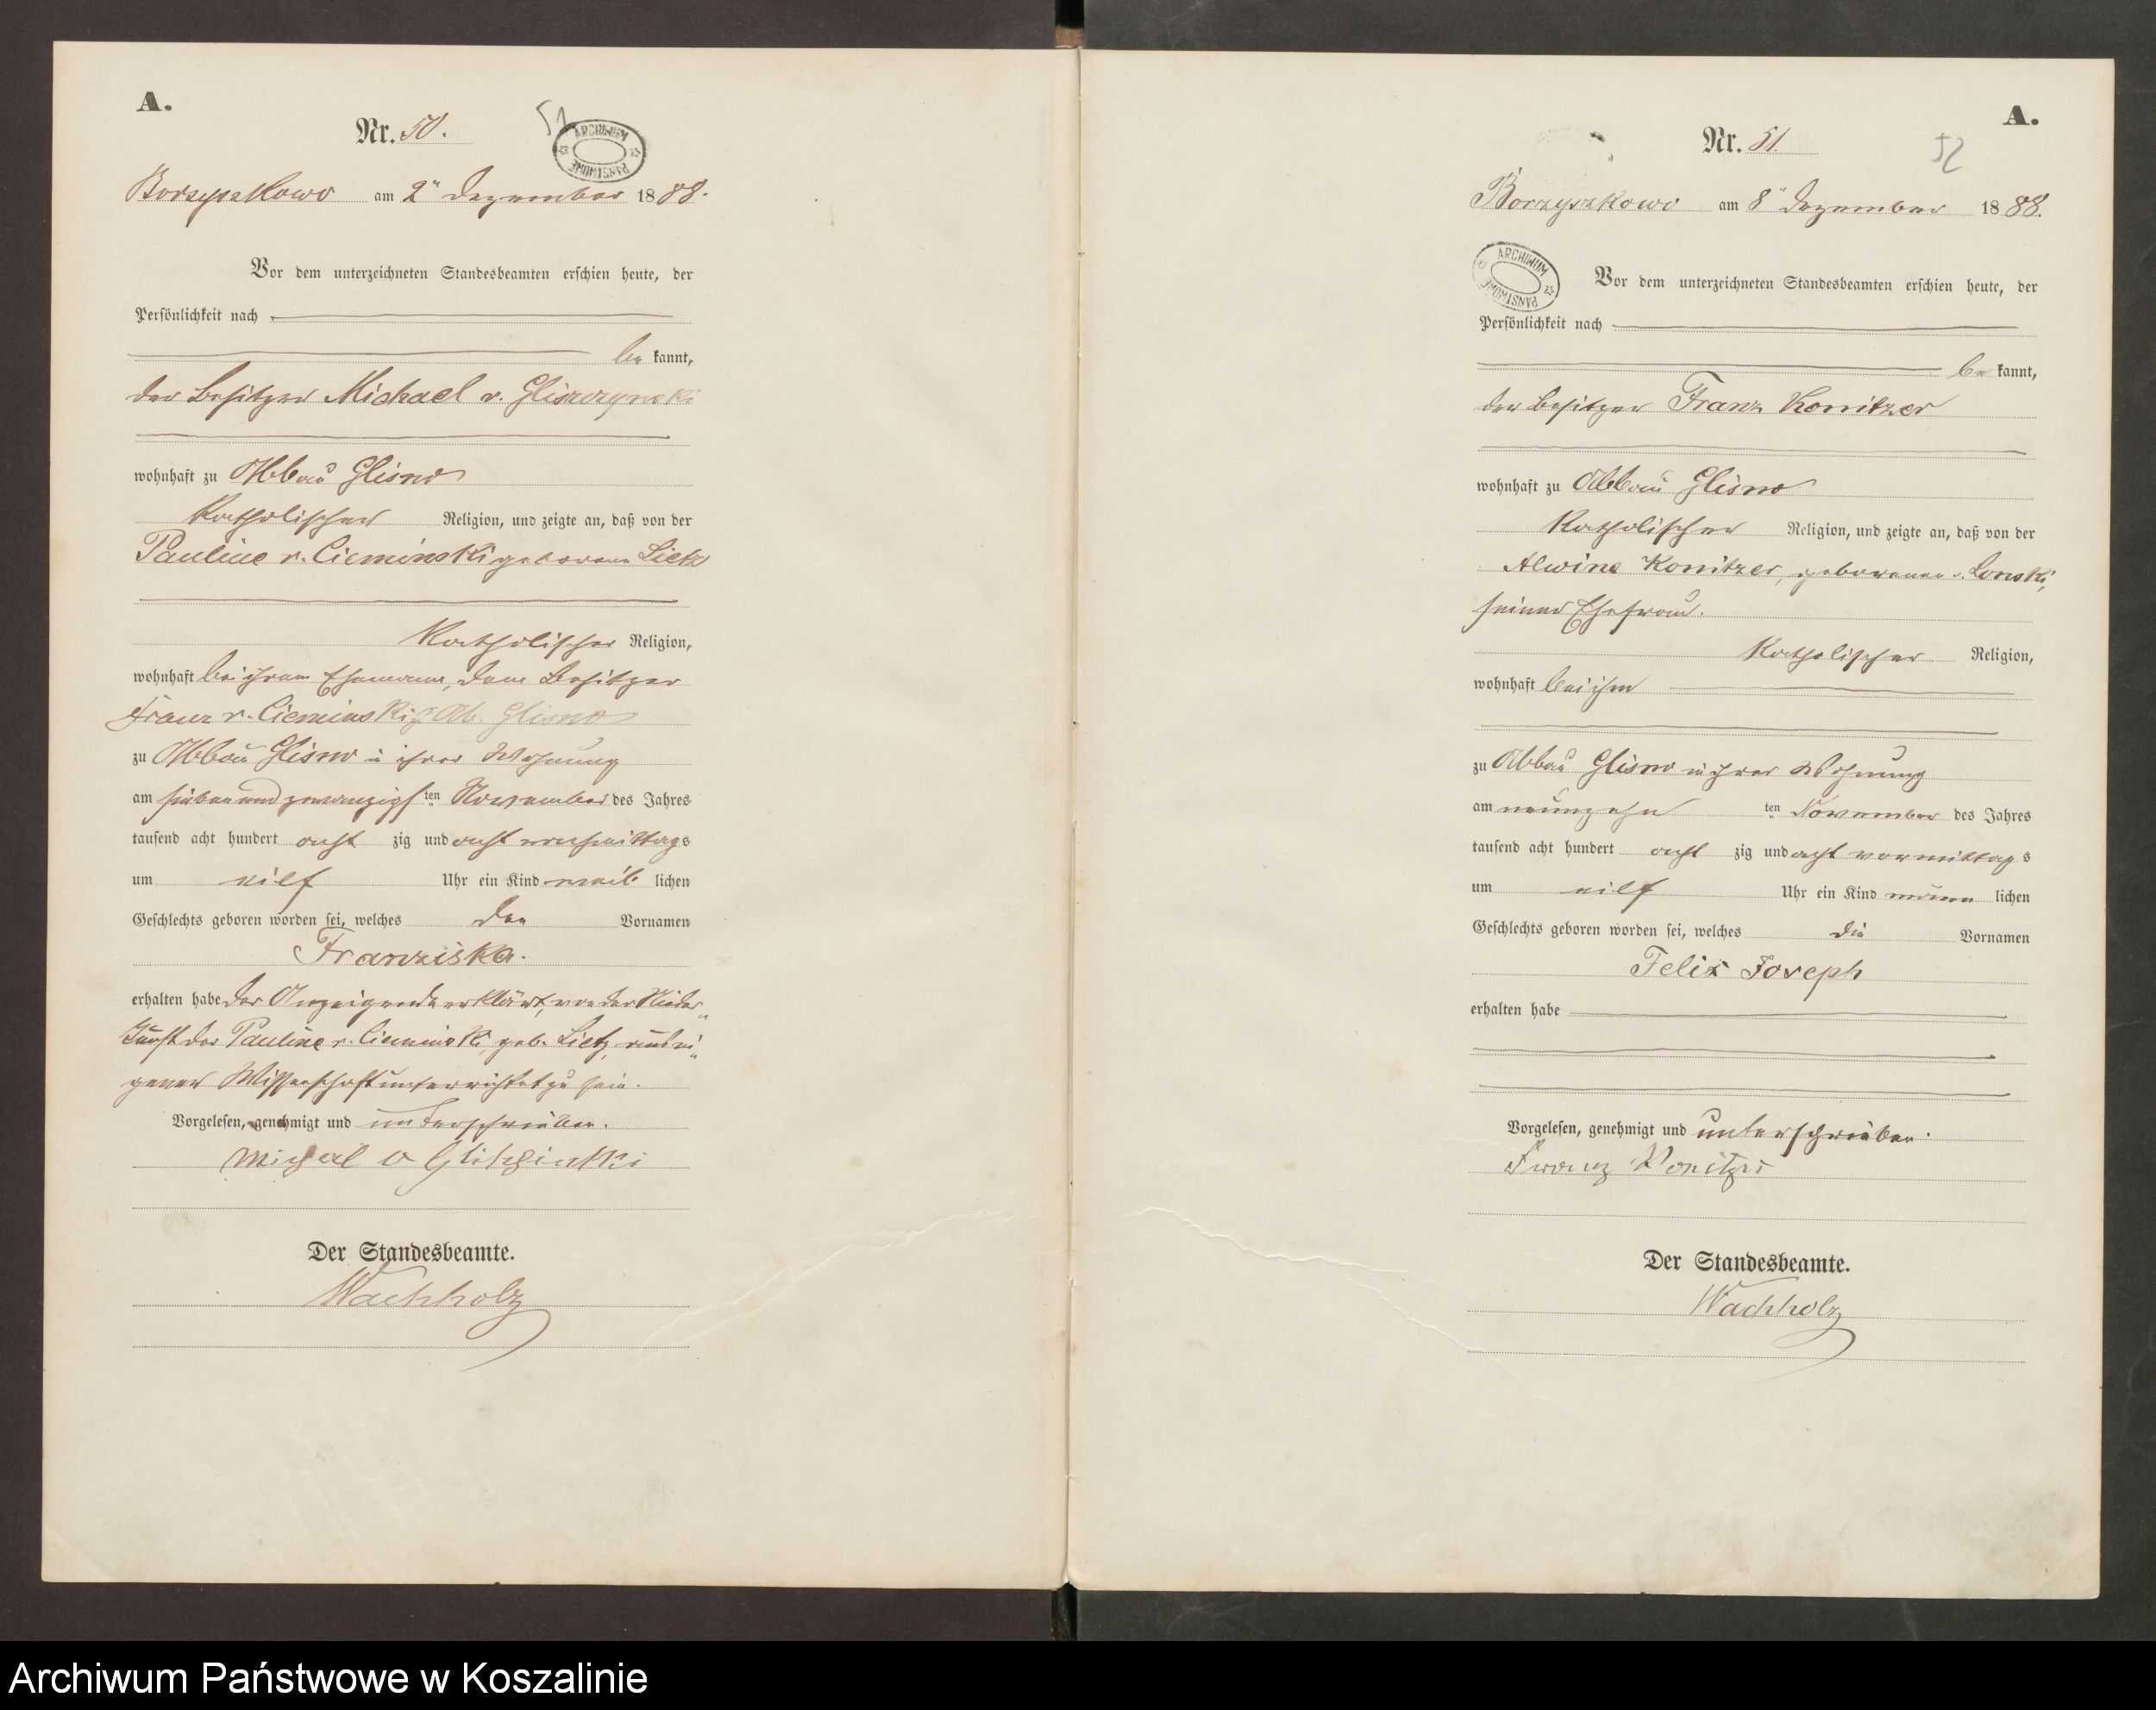 A.
Nr. 50.
51
ARCHIWUM PAŃSTWOWE
Borzyszkowo am 2ten Dezember 1888.
Vor dem unterzeichneten Standesbeamten erschien heute, der
Persönlichkeit nach
be kannt,
der Besitzer Michael v. Gliszczynski
wohnhaft zu Abbau Glisno
katholischer Religion, und zeigte an, daß von der
Pauline v. Cieminski geborene Lietz
katholischer Religion,
wohnhaft bei ihrem Ehemann, dem Besitzer
Franz v. Cieminski z. Ab. Glisno
zu Abbau Glisno in ihrer Wohnung
am sieben und zwanzigsten November des Jahres
tausend acht hundert acht zig und acht nachmittags
um eilf Uhr ein Kind weib lichen
Geschlechts geboren worden sei, welches den Vornamen
Franziska.
erhalten habe Der Anzeigende erklärt, von der Nieder"
kunft der Pauline v. Cieminski, geb. Lietz, aus ei"
gener Wissenschaft unterrichtet zu sein.
Vorgelesen, genehmigt und unterschrieben.
Michal v
Der Standesbeamte.
Wachholz
A.
Nr. 51.
52
Borzyszkowo am 8ten Dezember 1888.
ARCHIWUM PAŃSTWOWE
Vor dem unterzeichneten Standesbeamten erschien heute, der
Persönlichkeit nach
be kannt,
der Besitzer Franz Konitzer
wohnhaft zu Abbau Glisno
katholischer Religion, und zeigte an, daß von der
Alwine Konitzer, geborenen v. Lonski,
seiner Ehefrau.
katholischer Religion,
wohnhaft bei ihm
zu Abbau Glisno in ihrer Wohnung
am neunzehn ten November des Jahres
tausend acht hundert acht zig und acht vormittags
um eilf Uhr ein Kind männ lichen
Geschlechts geboren worden sei, welches die Vornamen
Felix Joseph
erhalten habe
Vorgelesen, genehmigt und unterschrieben.
Franz Konitzer
Der Standesbeamte.
Wachholz
Archiwum Państwowe w Koszalinie